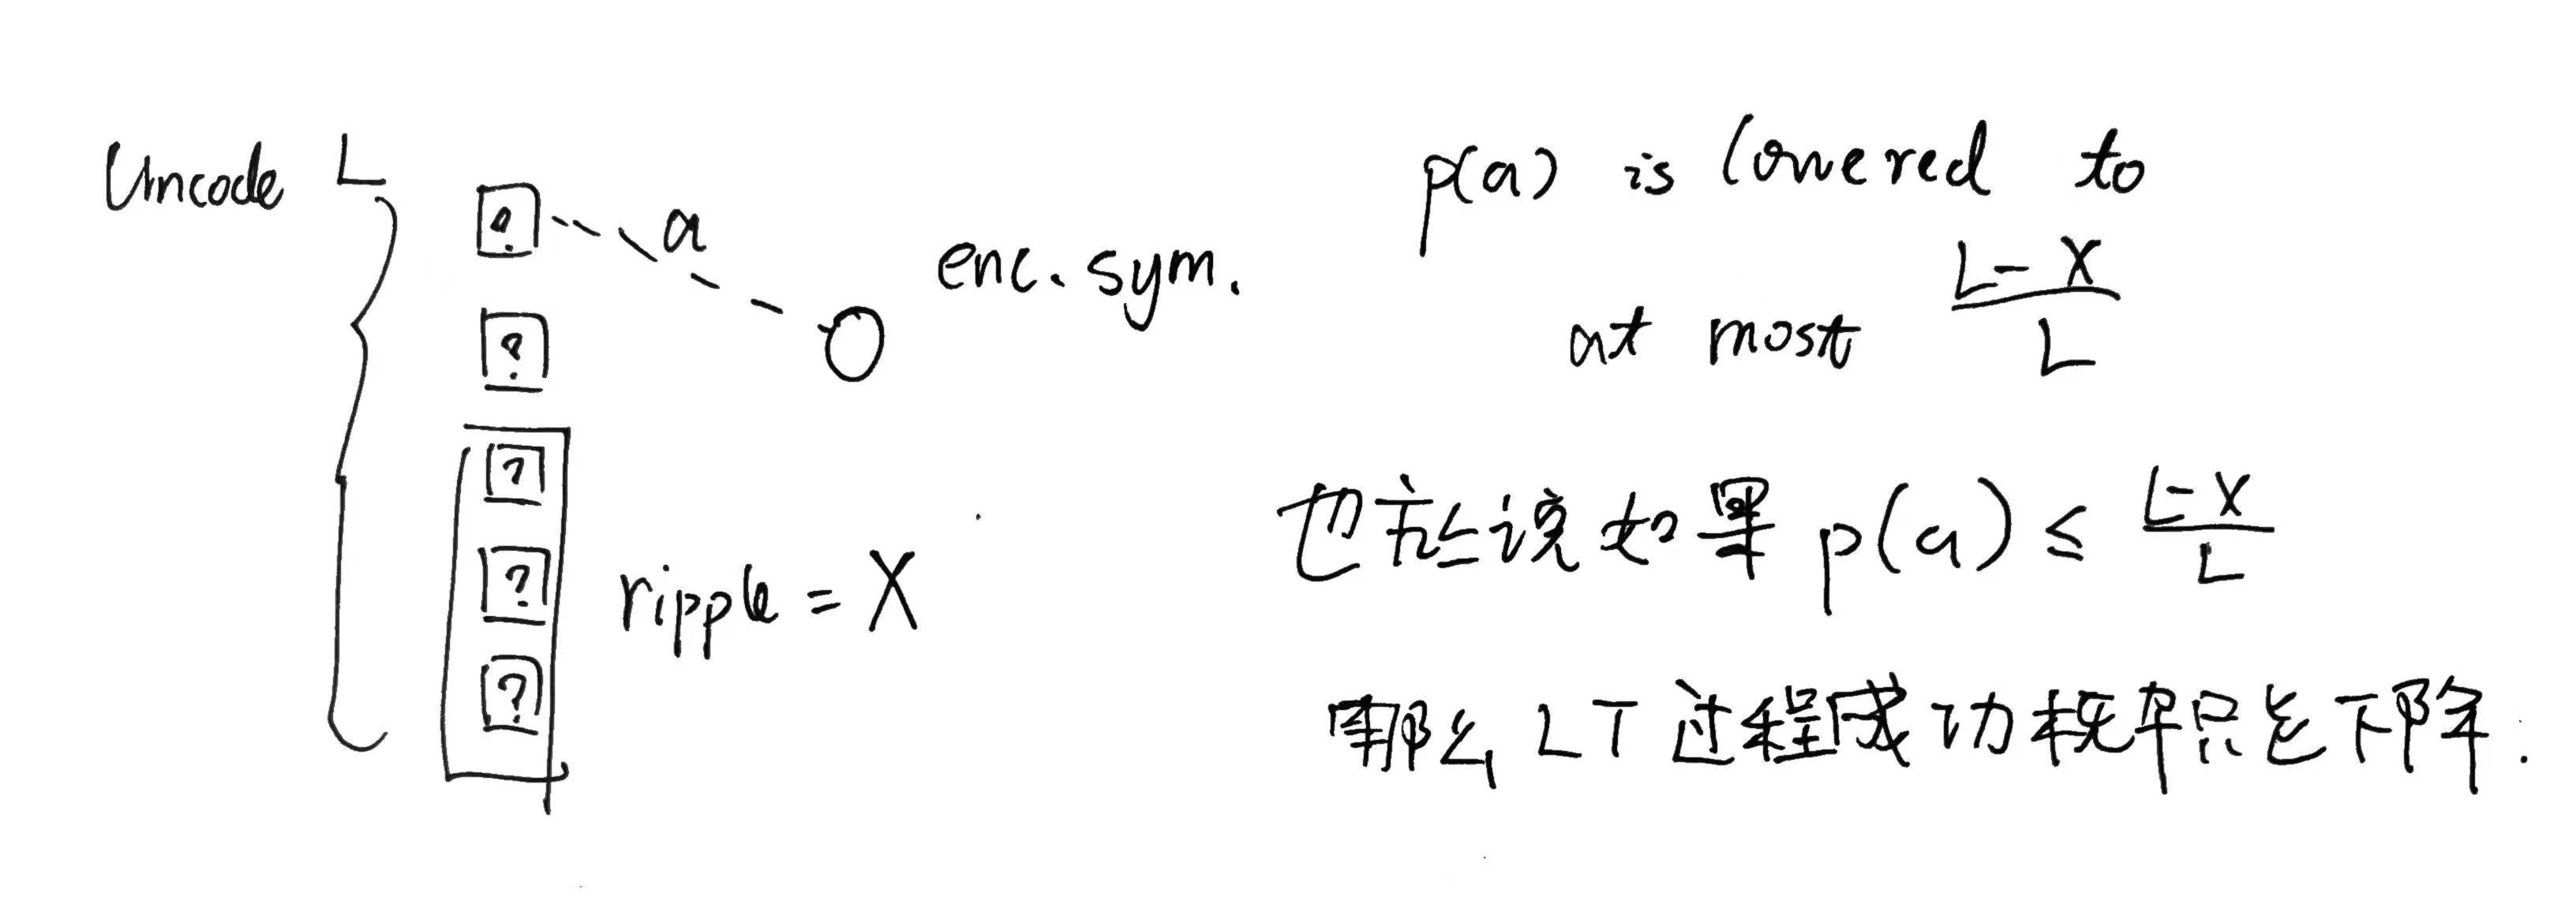 Uncode L
?
a
enc. sym.
?
?
?
ripple = X
?
p(a) is lowered to
at most \frac{L-X}{L}
也就是说如果 p(a) ≤ \frac{L-X}{L}
那么 LT 过程成功概率只会下降.